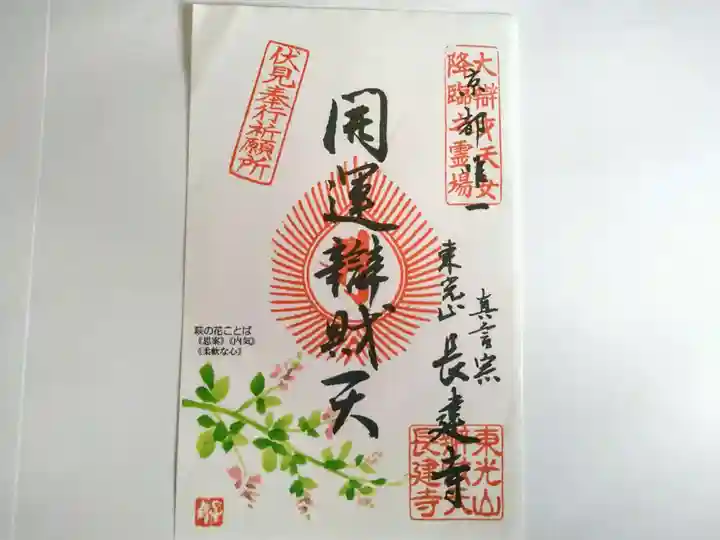 大辯財天女
降臨之霊場
京都唯一
真言宗
東光山 長建寺
開運辯財天
伏見奉行祈願所
萩の花ことば
《思案》《内気》
《柔軟な心》
東光山
辯財天
長建寺